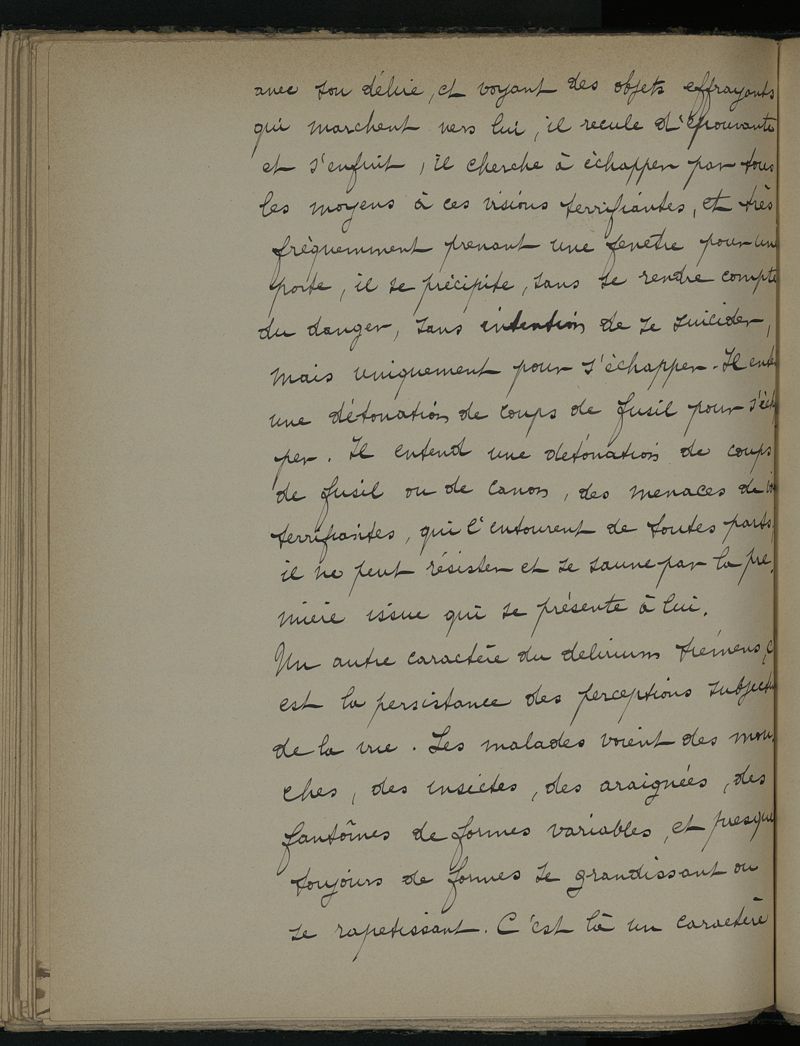 avec son délire, et voyant des objets effrayants
qui marchent vers lui, il recule d'épouvante
et s'enfuit, il cherche à échapper par tous
les moyens à ces visions terrifiantes, et très
fréquemment prenant une fenêtre pour un
porte, il se précipite, sans se rendre compte
du danger, sans intention de se suicider,
mais uniquement pour s'échapper. Il ent
une détonation de coups de fusil pour s'éch
per. Il entend une détonation de coups
de fusil ou de canon, des menaces de
terrifiantes, qui l'entourent de toutes parts,
il ne peut résister et se sauve par la pre,
mière issue qui se présente à lui.
Un autre caractère du delirium trémens, c
est la persistance des perceptions subjecti
de la vue. Les malades voient des mou,
ches, des insèctes, des araignées, des
fantômes de formes variables, et presque
toujours de formes se grandissant ou
se rapetissant. C'est là un caractère